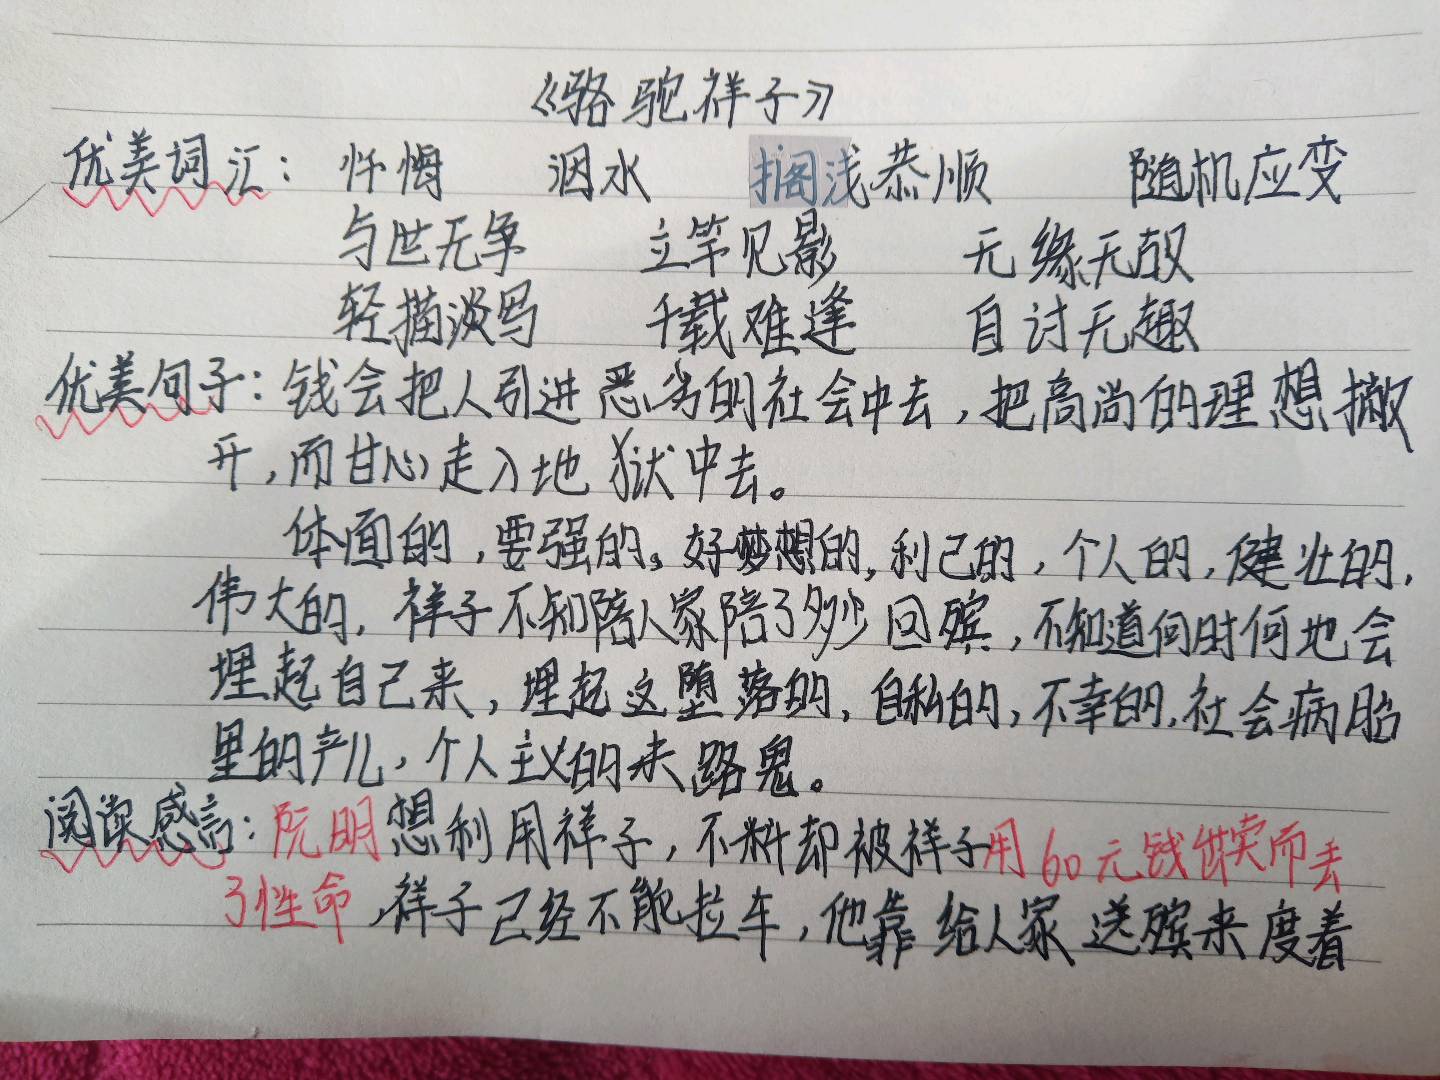 《骆驼祥子》
优美词汇: 忏悔 泅水 搁浅 恭顺 随机应变
与世无争 立竿见影 无缘无故
轻描淡写 千载难逢 自讨无趣
优美句子: 钱会把人引进恶劣的社会中去,把高尚的理想撇
开,而甘心走入地狱中去。
体面的,要强的,好梦想的,利己的,个人的,健壮的,
伟大的,祥子不知陪人家陪了多少回殡,不知道何时何地会
埋起自己来,埋起这堕落的,自私的,不幸的,社会病胎
里的产儿,个人主义的末路鬼。
阅读感言: 阮明想利用祥子,不料却被祥子用60元钱出卖而丢
了性命,祥子已经不能拉车,他靠给人家送殡来度着